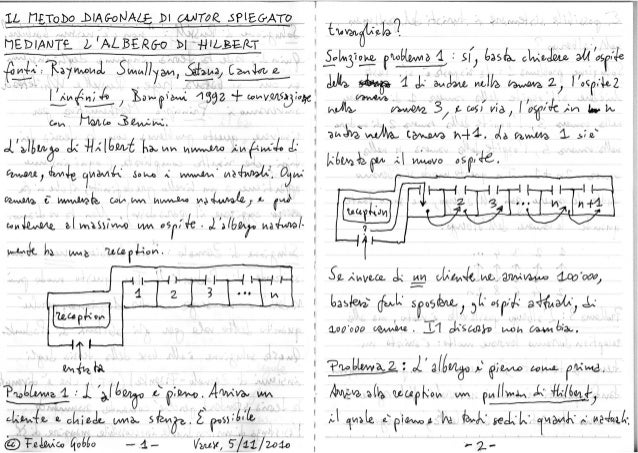 IL METODO DIAGONALE DI CANTOR SPIEGATO
MEDIANTE L'ALBERGO DI HILBERT
fonti: Raymond Smullyan, Satana, Cantor e
l'infinito, Bompiani 1992 + conversazione
con Marco Benini.
L'albergo di Hilbert ha un numero infinito di
camere, tante quanti sono i numeri naturali. Ogni
camera è numerata con un numero naturale, e può
contenere al massimo un ospite. L'albergo natural-
mente ha una reception.
reception
1 2 3 ... n
entrata
Problema 1: L'albergo è pieno. Arriva un
cliente e chiede una stanza. È possibile
cc Federico Gobbo - 1 - Varese, 5/11/2010
trovargliela?
Soluzione problema 1: sí, basta chiedere all'ospite
della 1 di andare nella camera 2, l'ospite 2
camera
nella camera 3, e così via, l'ospite in n
andrà nella camera n+1. La camera 1 si è
liberata per il nuovo ospite.
reception
2 3 ... n n+1
Se invece di un cliente ne arrivano 100'000,
basterà farli spostare, gli ospiti attuali, di
100'000 camere. Il discorso non cambia.
Problema 2: L'albergo è pieno come prima.
Arriva alla reception un pullman di Hilbert,
il quale è pieno e ha tanti sedili quanti i naturali.
- 2 -